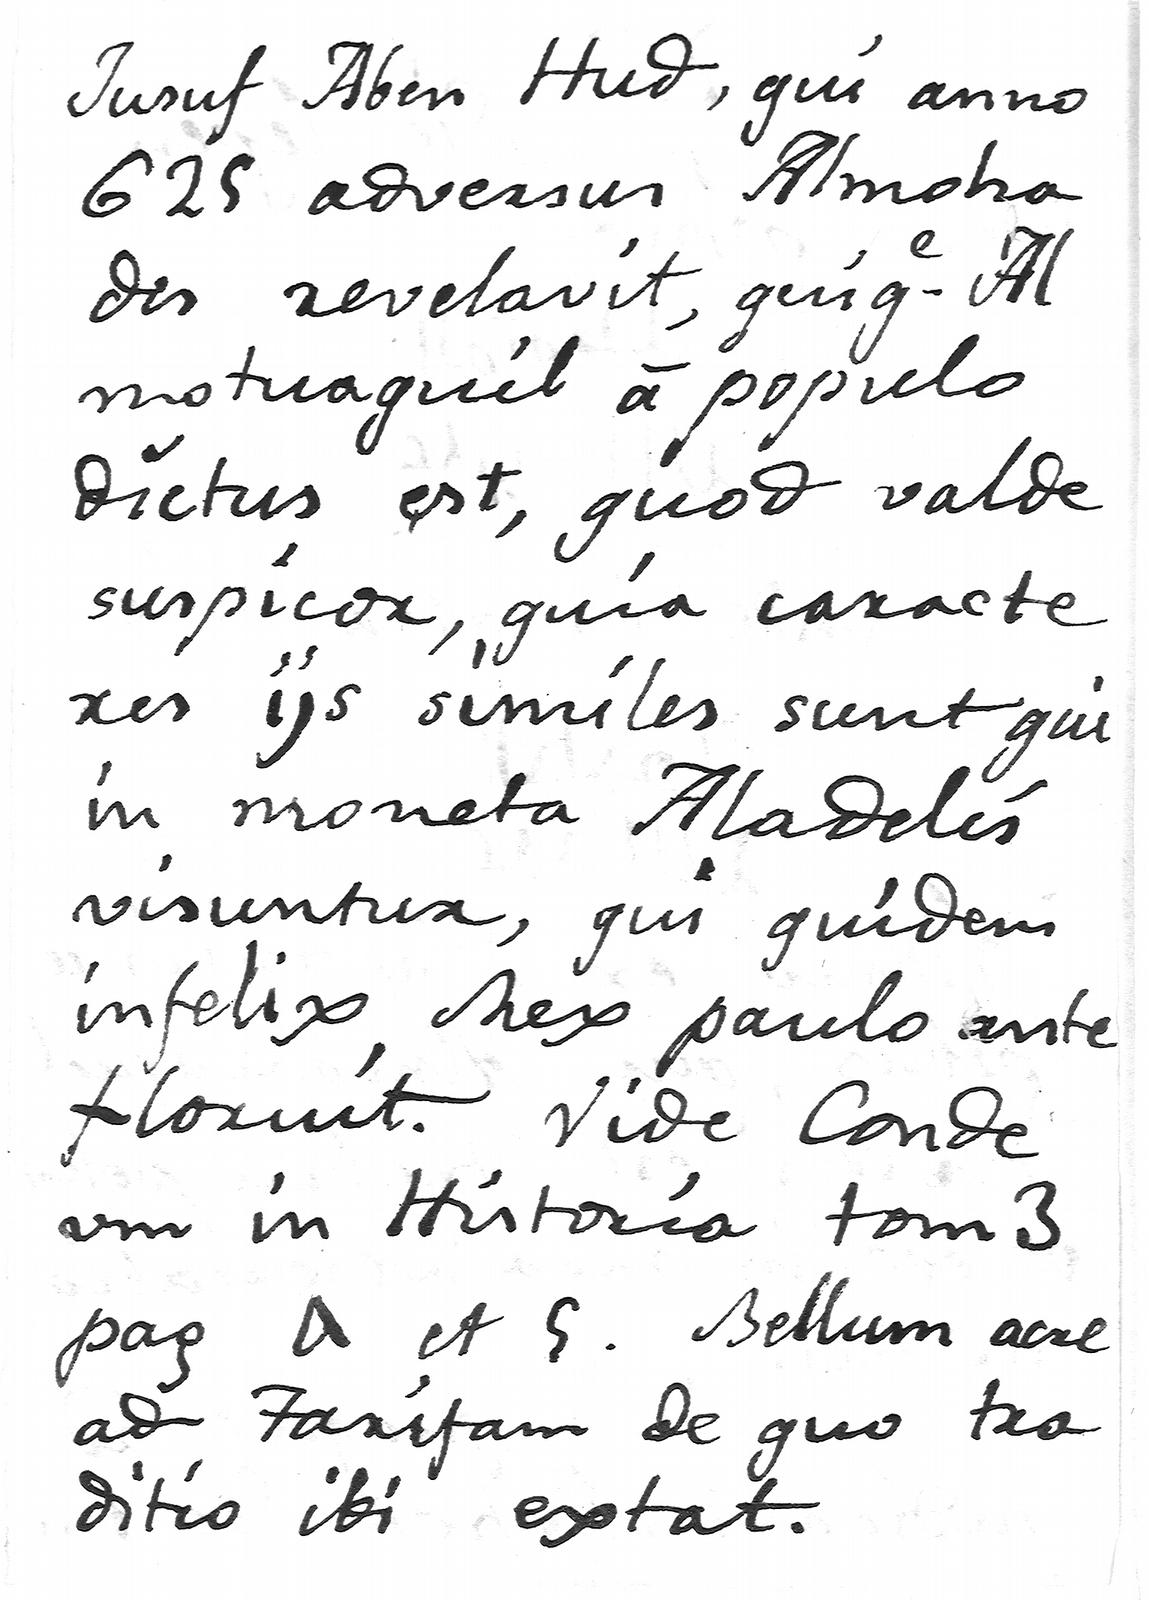 Jusuf Aben Hud, qui anno
625 adversus Almoha
des revelavit, quiq^e- Al
motuaquil ā populo
dictus est, quod valde
suspicor, quia caracte
res ijs similes sunt qui
in moneta Aladelis
visuntur, qui quidem
infelix Rex paulo ante
floruit. Vide Conde
um in Historia tom 3
pag 4 et 5. Bellum acre
ad Tarifam de quo tra
ditio ibi extat.